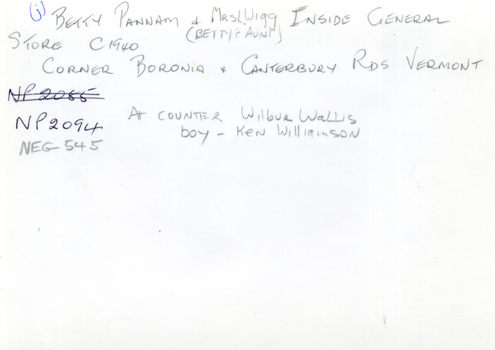 (j) BETTY PANNAM & MRS L WIGG INSIDE GENERAL
(BETTY'S AUNT)
STORE C1940
CORNER BORONIA & CANTERBURY RDS VERMONT
NP 2085
NP 2094 At COUNTER Wilbur Wallis
boy - Ken Williamson
NEG 545